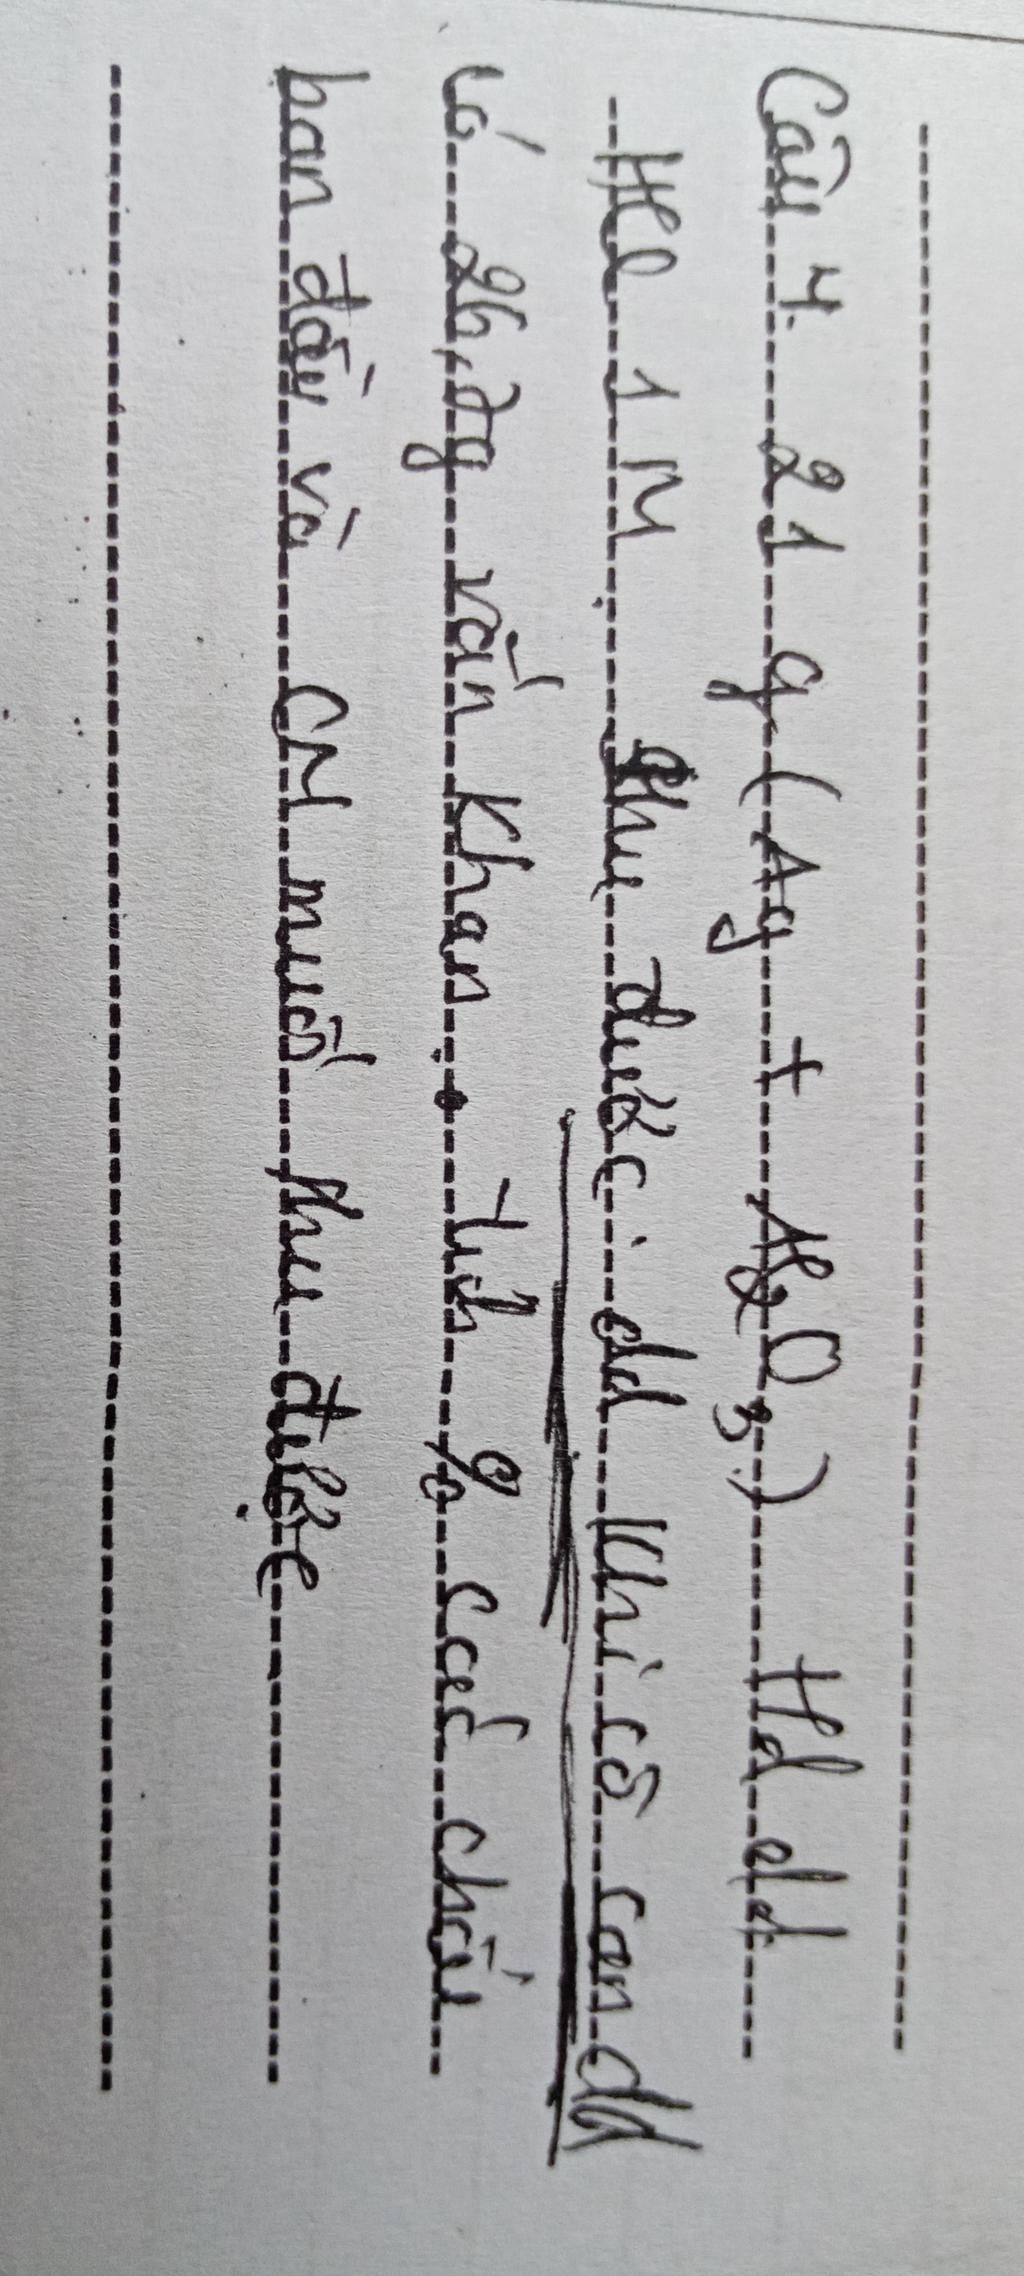 Câu 4. 21 g (Ag + Al2O3) Hd dd
HCl 1 M thu được dd khi cô cạn dd
có 26,7g rắn khan. Tính % các chất
ban đầu và CM muối thu được